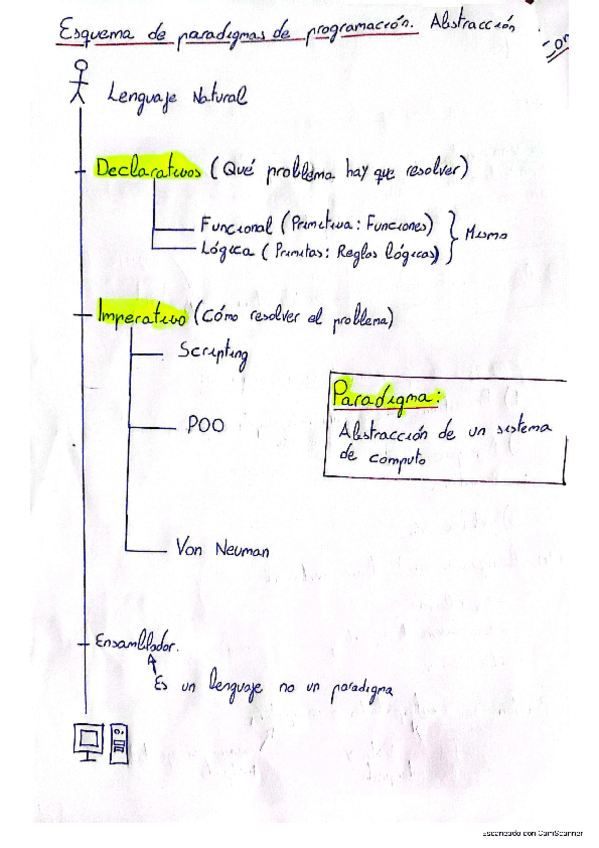 Esquema de paradigmas de programación. Abstracción
Lenguaje Natural
Declarativos (Qué problema hay que resolver)
Funcional (Primitiva: Funciones)
Lógica (Primitas: Reglas lógicas)
Mismo
Imperativo (Cómo resolver el problema)
Scripting
POO
Von Neuman
Paradigma:
Abstracción de un sistema
de computo
Ensamblador.
Es un lenguaje no un paradigma
Escaneado con CamScanner